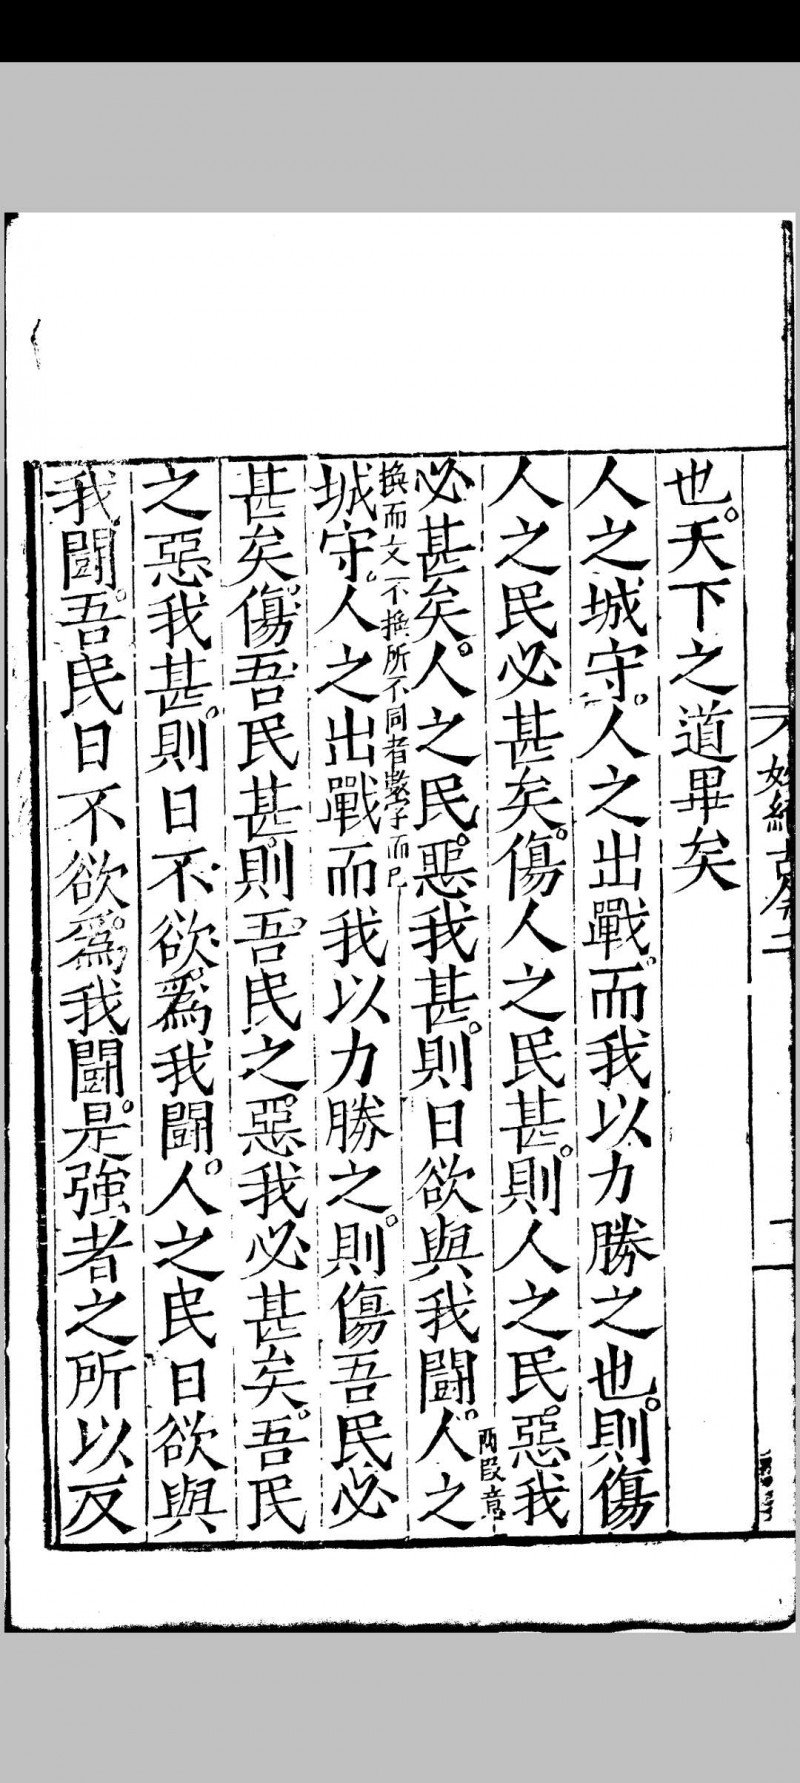 妙絶古今二
一
也。天下之道畢矣
人之城守。人之出戰。而我以力勝之也。則傷
人之民必甚矣。傷人之民甚。則人之民惡我
必甚矣。人之民惡我甚。則日欲與我鬪。人之
兩段意
換而文不換所不同者數字而已
城守。人之出戰而我以力勝之。則傷吾民必
甚矣。傷吾民甚。則吾民之惡我必甚矣。吾民
之惡我甚。則日不欲爲我鬪。人之民日欲與
我鬪。吾民日不欲爲我鬪。是強者之所以反